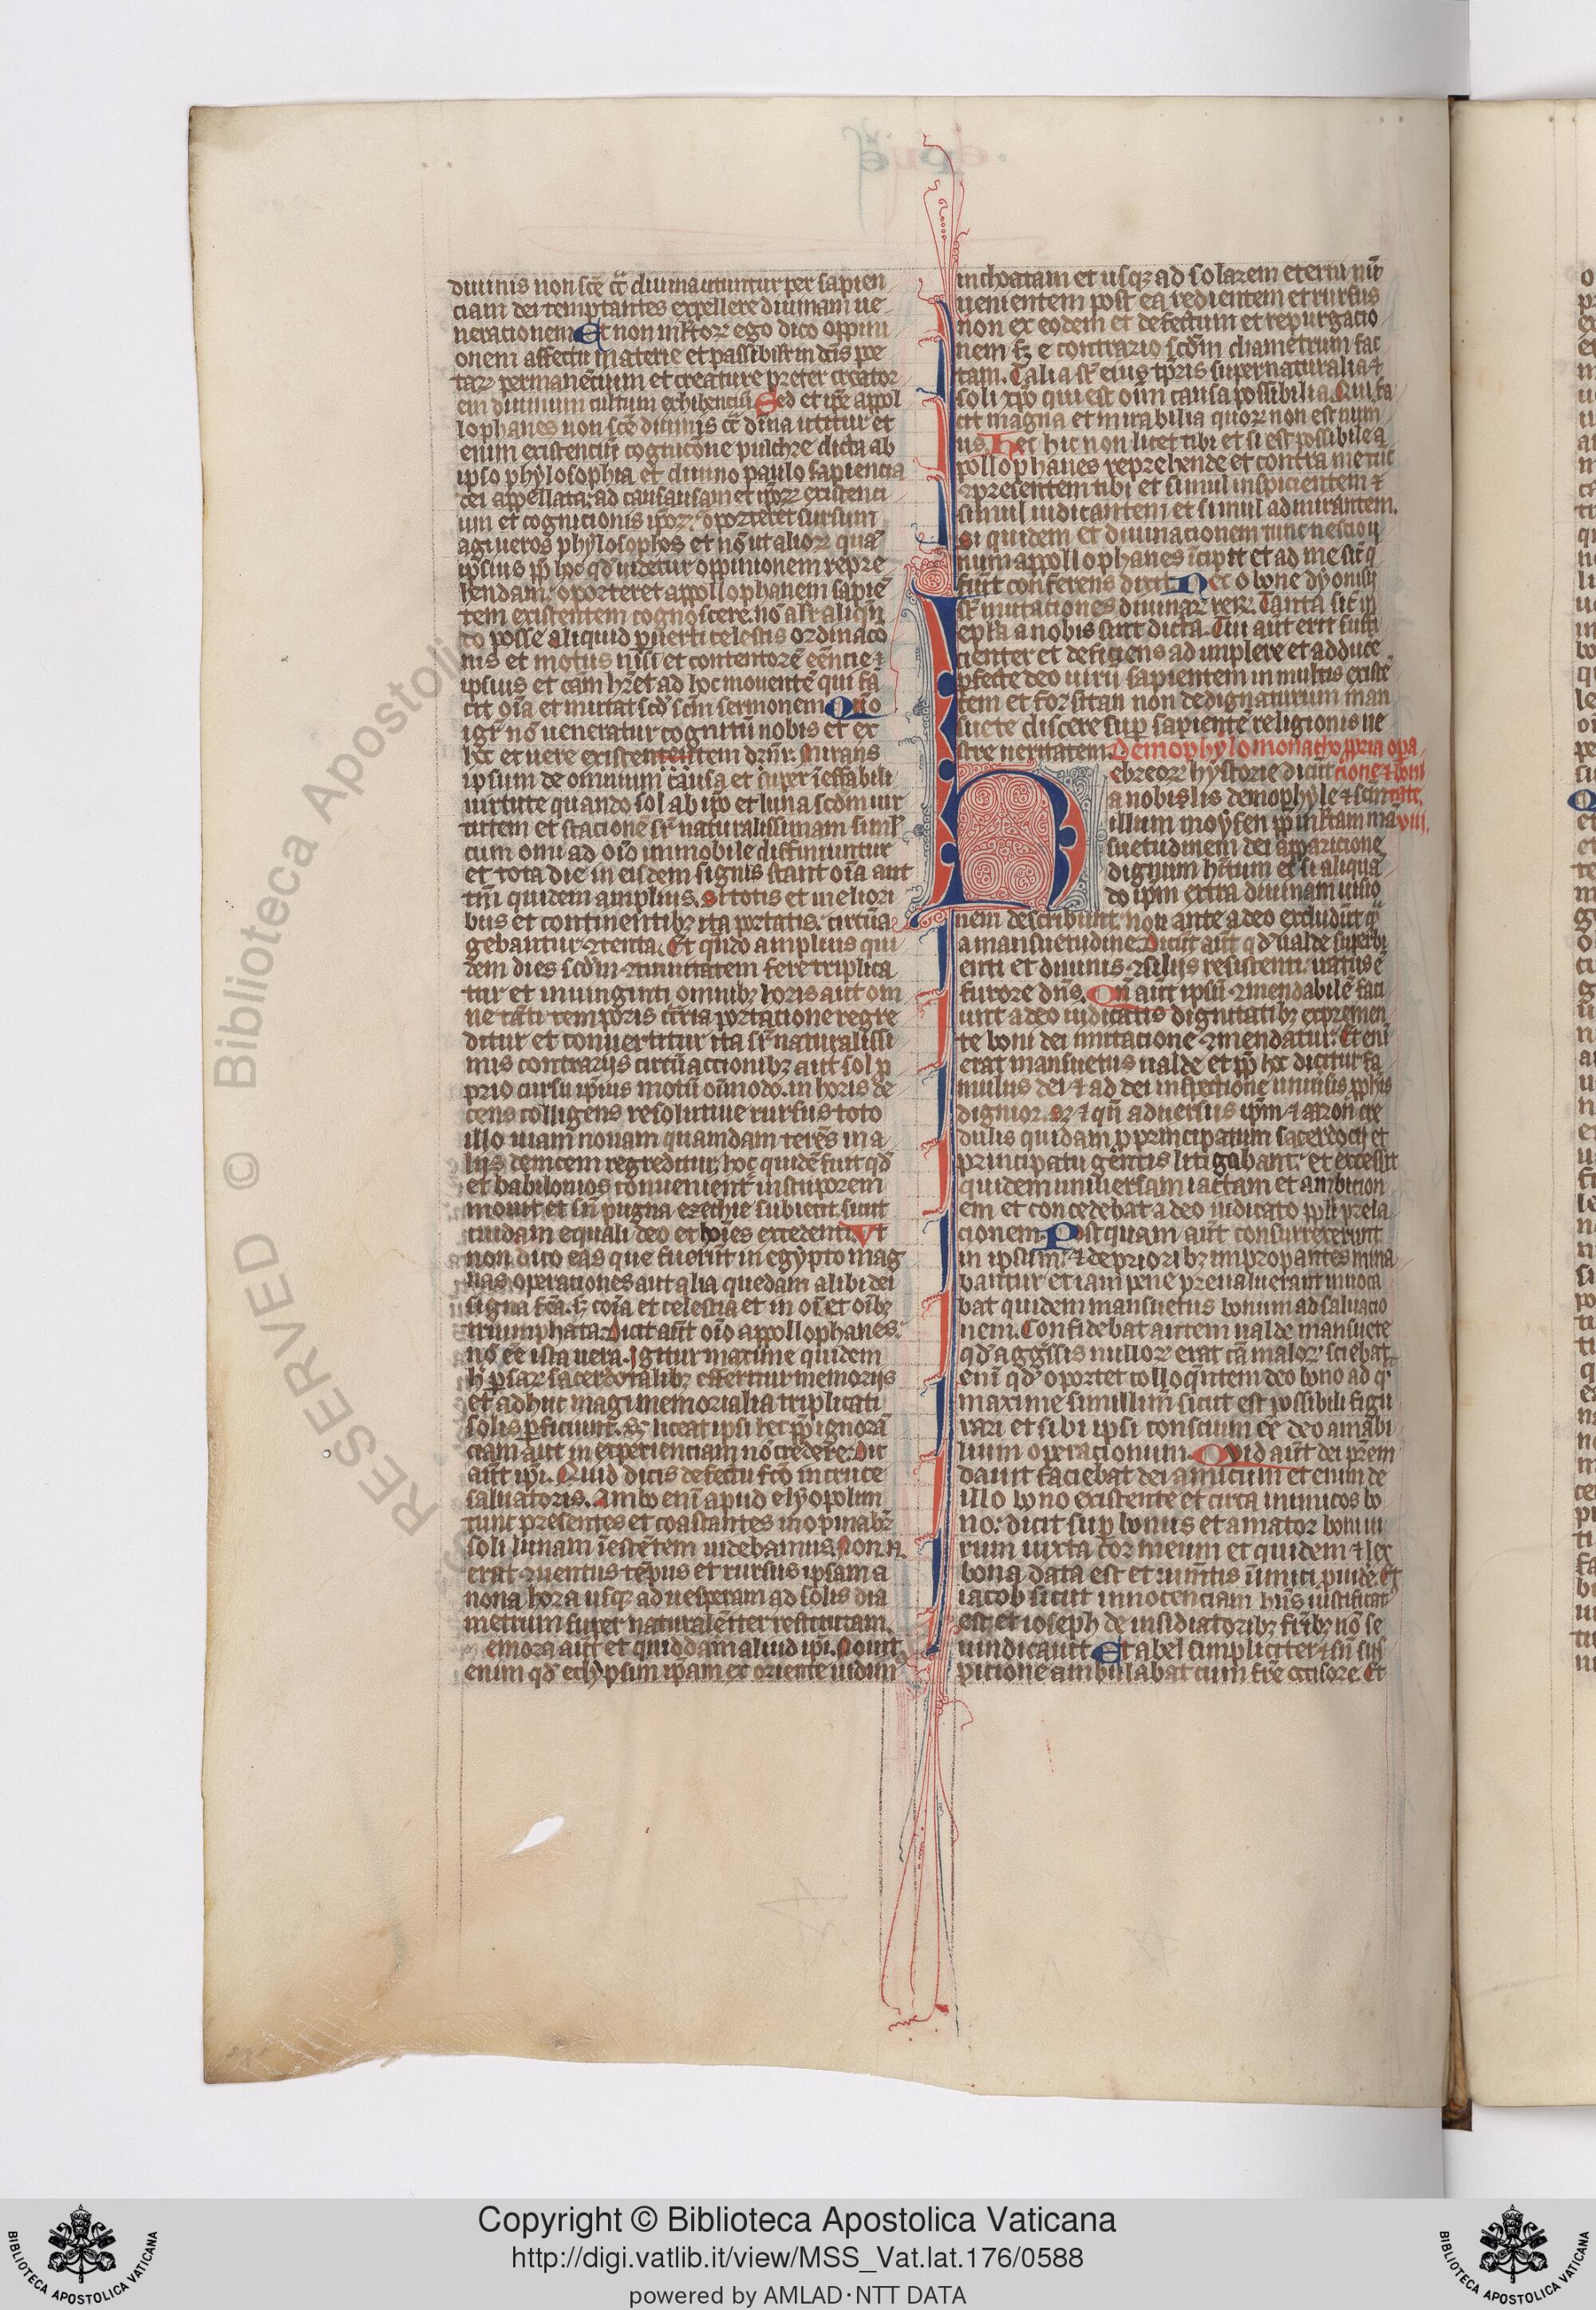 diuinis non scē cōtra diuina utuntur per sapien
ciam dei temptantes expellere diuinam ue
neracionem Et non mltorꝝ ego dico oppini
onem affectu materie et passibilit in
tarꝝ permanēcium et creature preter creator
em diuinum cultum exhibenciū Sed et ipe appol
lophanes non scē diuinis diuina utitur et
enim existenciū cognicōne pulchre dicta ab
ipso phylosophia et diuino paulo sapiencia
dei appellata; ad causam et ipoꝝ existenci
um et cognicionis ipoꝝ oporteret sursum
agi ueros phylosophos et nō ut alioꝝ quā
ipsius hoc qd uidetur oppinionem repre
hendam; oporteret appollophanem sapiē
tem existentem cognoscere nō alr aliqn
do posse aliquid puerti celestis ordinacō
nis et motus nisi et contentorē eēncie ⁊
ipsius et cām hret ad hoc mouentē qui fa
cit oīa et mutat scd scm sermonem Quō
igr nō ueneratur cognitū nobis et ex
hoc et uere existentem dnm. Mirans
ipsum de omnium causa et super ieffabili
uirtute quando sol ab ipo et luna scdm uir
tutem et stacionē sr naturalissimam siml
cum omni ad oīo immobile diffiniuntur
et tota die in eisdem signis stant oīa aut
tm quidem amplius. Si totis et meliori
bus et continentibꝫ ita portatis circūa
gebantur ꝯtenta. Et qndo amplius qui
dem dies scdm ꝯtinuitatem fere triplica
tur et in uinginti omnibꝫ horis aut om
ne tāti temporis cōtria portacione regre
ditur et conuertitur ita sr naturalissi
mis contrarijs circūaccionibꝫ aut sol p
prio cursu ipius motū oīmodo in horis de
cens colligens resolutiue rursus toto
illo uiam nouam quamdam terēs in a
lijs deincem regreditur; hoc quidē fuit qd
et babilonios conuenient in stuporem
mouit et sn pugna ezechie subiecit sicut
cuidam equali deo et hoīes excedenti. Vt
non dico eas que fuerut in egypto mag
nas operationes aut alia quedam alibi dei
signa fca. sꝫ coīa et celestia et in oi et oībꝫ
triumphata. Dicit aūt oīo appollophanes
nō eē ista uera. Igitur maxime quidem
h psarꝝ sacerdotalibꝫ effertur memorijs
et adhuc magi memorialia triplicati
solis pficiunt. Sꝫ liceat ipsi hec pp ignorā
ciam aut in experienciam nō credere. Dic
aūt ipi. Quid dicis de defectu fco in cruce
saluatoris. Ambo enī apud elyopolim
tunc presentes et coastantes inopinabr
soli lunam ieste tem uidebamus. Non .n.
erat ꝯuentus tēpus et rursus ipsam a
nona hora usqꝫ ad uesperam ad solis dia
metrum super naturalēter restitutam.
emora aūt et quiddam aliud ipi. Nouit
enim qd eclypsim ipam ex oriente uidim
inchoatam et usqꝫ ad solarem
uenientem post ea redientem et rursus
non ex eodem et defectum et repurgacio
nem sꝫ e contrario scdm diametrum fac
tam. Talia st eius tpris supernaturalia ⁊
soli xpo qui est oīm causa possibilia. Qui fa
cit magna et mirabilia quorꝝ non est num
us Hec hic non licet tibi et si est possibile a
pollophanes reprehende et contra me tuc
ꝯpresentem tibi et simul inspicientem ⁊
simul iudicantem et simul admirantem.
Si quidem et diuinacionem tunc nescio u
num appollophanes icipit et ad me sic q
fiunt conferens dixit Hec o bone dyonisij
st mutaciones diuinarꝝ rerꝝ. Tanta sic in
epla a nobis sint dicta. Tui aut erit suffi
cienter et deficiens ad implere et adduce
pfecte deo uirū sapientem in multis existē
tem et forsitan non dedignaturum man
suete discere sup sapiente religionis ne
stre ueritatem. Demophylo monacho ppria opa
ebreoꝝ hystorie dicut cione ⁊ boni
a nobis lis demophyle ⁊ scm tate.
illum moysen pp mltam mā viij.
suetudinem dei apparicione
dignum hītum et si aliqua
do ipm extra diuinam uisio
nem describunt non ante a deo excludūt q
a mansuetudine. Dicut aūt qd ualde superbi
enti et diuinis ꝯsilijs resistenti: iratus ē
furore dns. Qn aūt ipsū ꝯmendabilē faci
unt a deo iudicatis dignitatibꝫ expremen
te boni dei imitacione ꝯmendatur. Et eni
erat mansuetus ualde et pp hoc dicitur fa
mulus dei ⁊ ad dei inspectione uniusis pphis
dignior. Sꝫ ⁊ qn aduersus ipm ⁊ aaron cre
dulis quidam p principatum sacerdocij et
principatu gentis litigabant; et excessit
quidem uniuersam iactam et ambicion
em et concedebat a deo iudicato ppli prela
cionem. Postquam aūt consurrexerunt
in ipsum; ⁊ de prioribꝫ impropantes mina
bantur et iam pene preualuerant inuoca
bat quidem mansuetus bonum ad saluacio
nem. Confidebat autem ualde mansuete
qd aggssis nulloꝝ erat cā maloꝝ sciebat
enī qd oportet colloqutem deo bono ad q
maxime simillimū sicut est possibili figu
rari et sibi ipsi conscium eē deo amabi
lium operacionum. Quid aūt dei prem
dauit faciebat dei amicum et enim de
illo bono existente et circa inimicos bo
no: dicit sup bonus et amator boni ui
rum iuxta cor meum et quidem ⁊ lex
bona data est et iumtis inimici puidē. Et
iacob sicut innocenciam hns iustificat
est; et ioseph de insidiatoribꝫ fribꝫ nō se
uindicauit Et abel simpliciter ⁊ sn sus
picione ambulabat cum fre occisore. Et
RESERVED © Biblioteca Apostoli
Copyright © Biblioteca Apostolica Vaticana
http://digi.vatlib.it/view/MSS_Vat.lat.176/0588
powered by AMLAD·NTT DATA
BIBLIOTECA APOSTOLICA VATICANA
BIBLIOTECA APOSTOLICA VATICANA